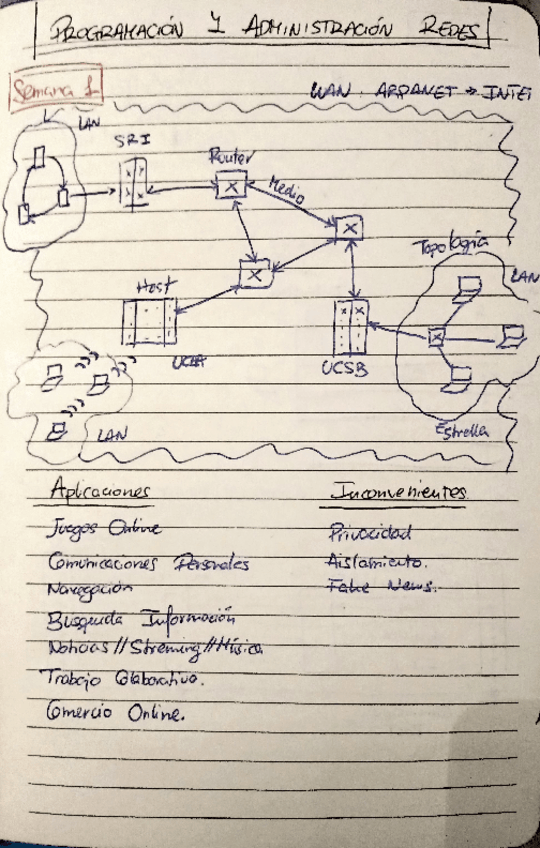 PROGRAMACIÓN Y ADMINISTRACIÓN REDES
Semana 1
WAN. ARPANET → INTE
LAN
SRI
Router
Medio
Topología
LAN
Host
UCLA
UCSB
LAN
Estrella
Aplicaciones
Juegos Online
Comunicaciones Personales
Navegación
Búsqueda Información
Noticias // Streming // Música
Trabajo Colaborativo.
Comercio Online.
Inconvenientes
Privacidad
Aislamiento.
Fake News.